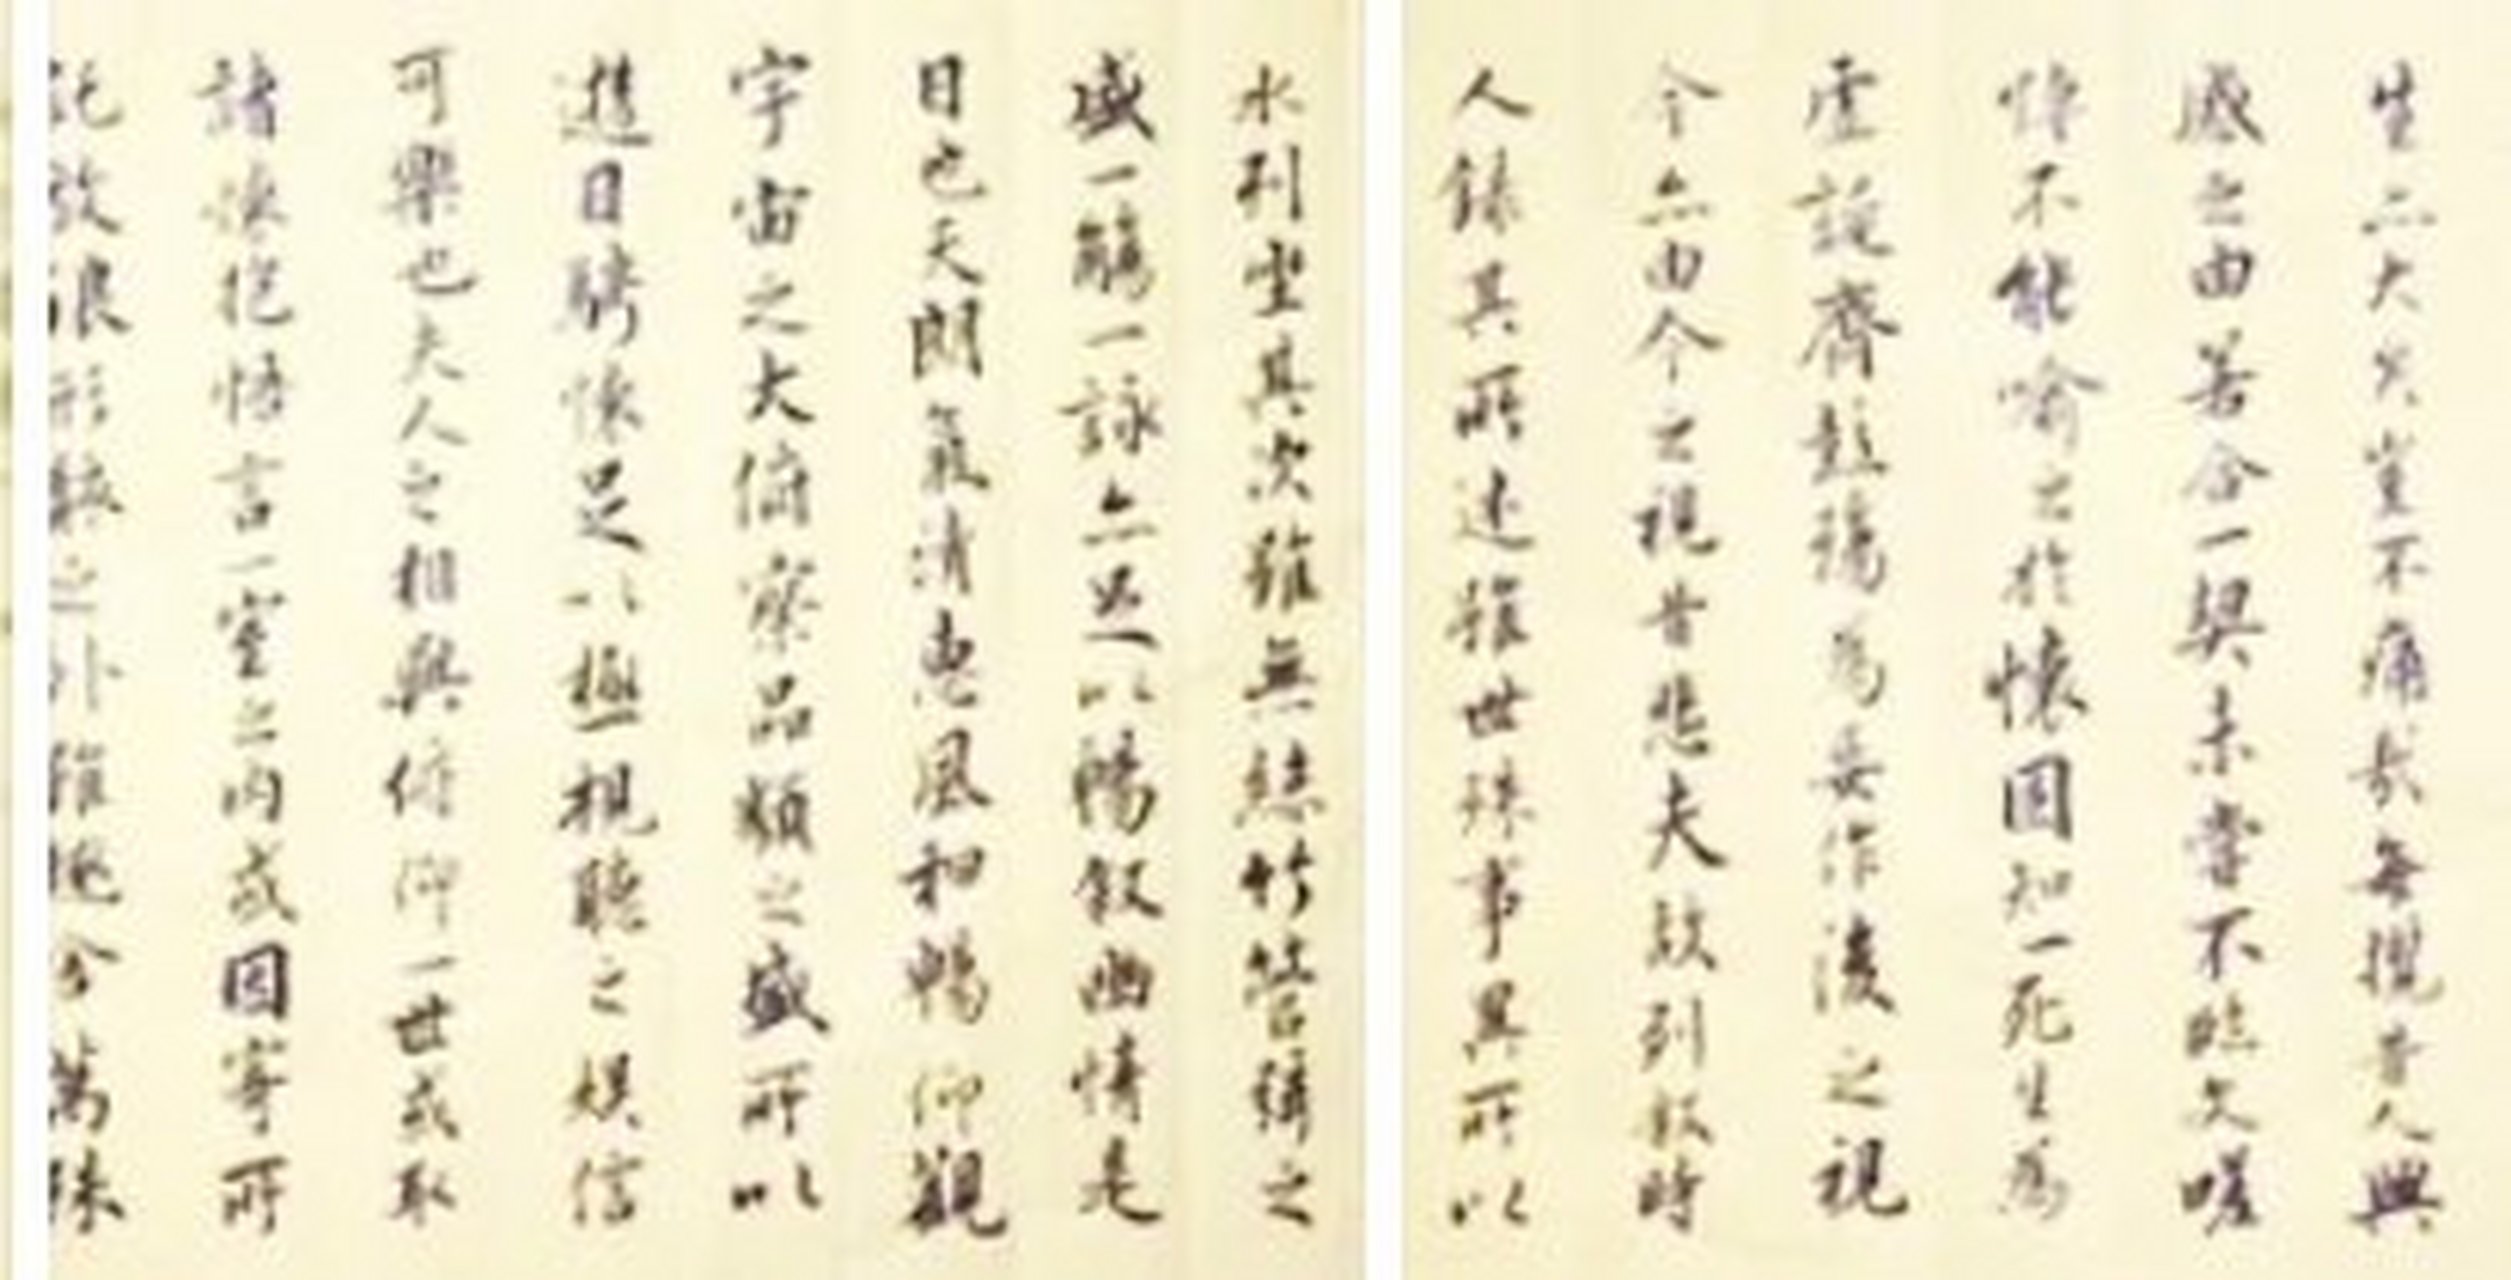 生亦大矣豈不痛哉每攬昔人興
感之由若合一契未嘗不臨文嗟
悼不能喻之於懷固知一死生為
虛誕齊彭殤為妄作後之視
今亦由今之視昔悲夫故列敘時
人錄其所述雖世殊事異所以
水列坐其次雖無絲竹管絃之
盛一觴一詠亦足以暢敘幽情是
日也天朗氣清惠風和暢仰觀
宇宙之大俯察品類之盛所以
遊目騁懷足以極視聽之娛信
可樂也夫人之相與俯仰一世或取
諸懷抱悟言一室之內或因寄所
託放浪形骸之外雖趣舍萬殊